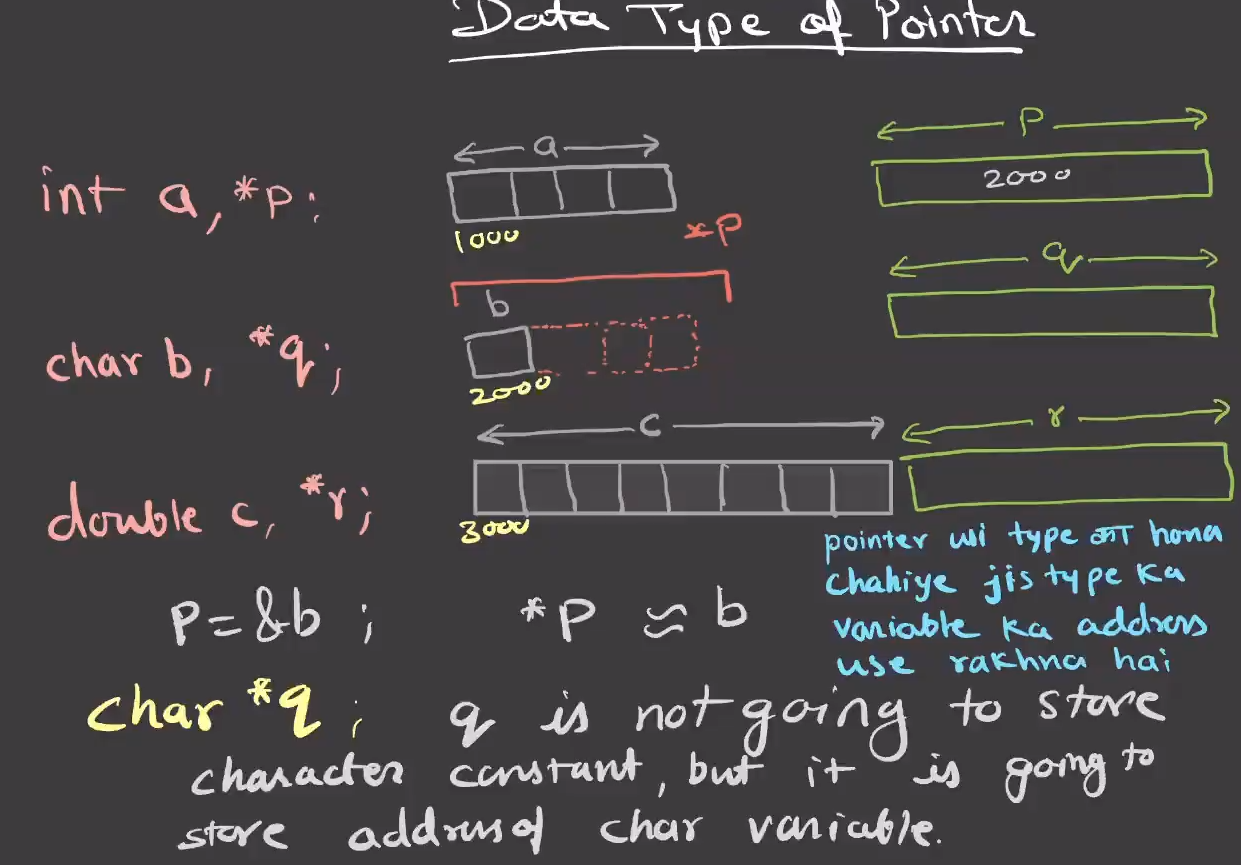 Data Type of Pointer
a
p
int a, *p;
2000
1000
*p
q
b
char b, *q;
2000
c
r
double c, *r;
3000
pointer usi type का hona
chahiye jis type ka
variable ka address
use rakhna hai
P=&b ;
*P ≃ b
char *q ;
q is not going to store
character constant, but it is going to
store address of char variable.